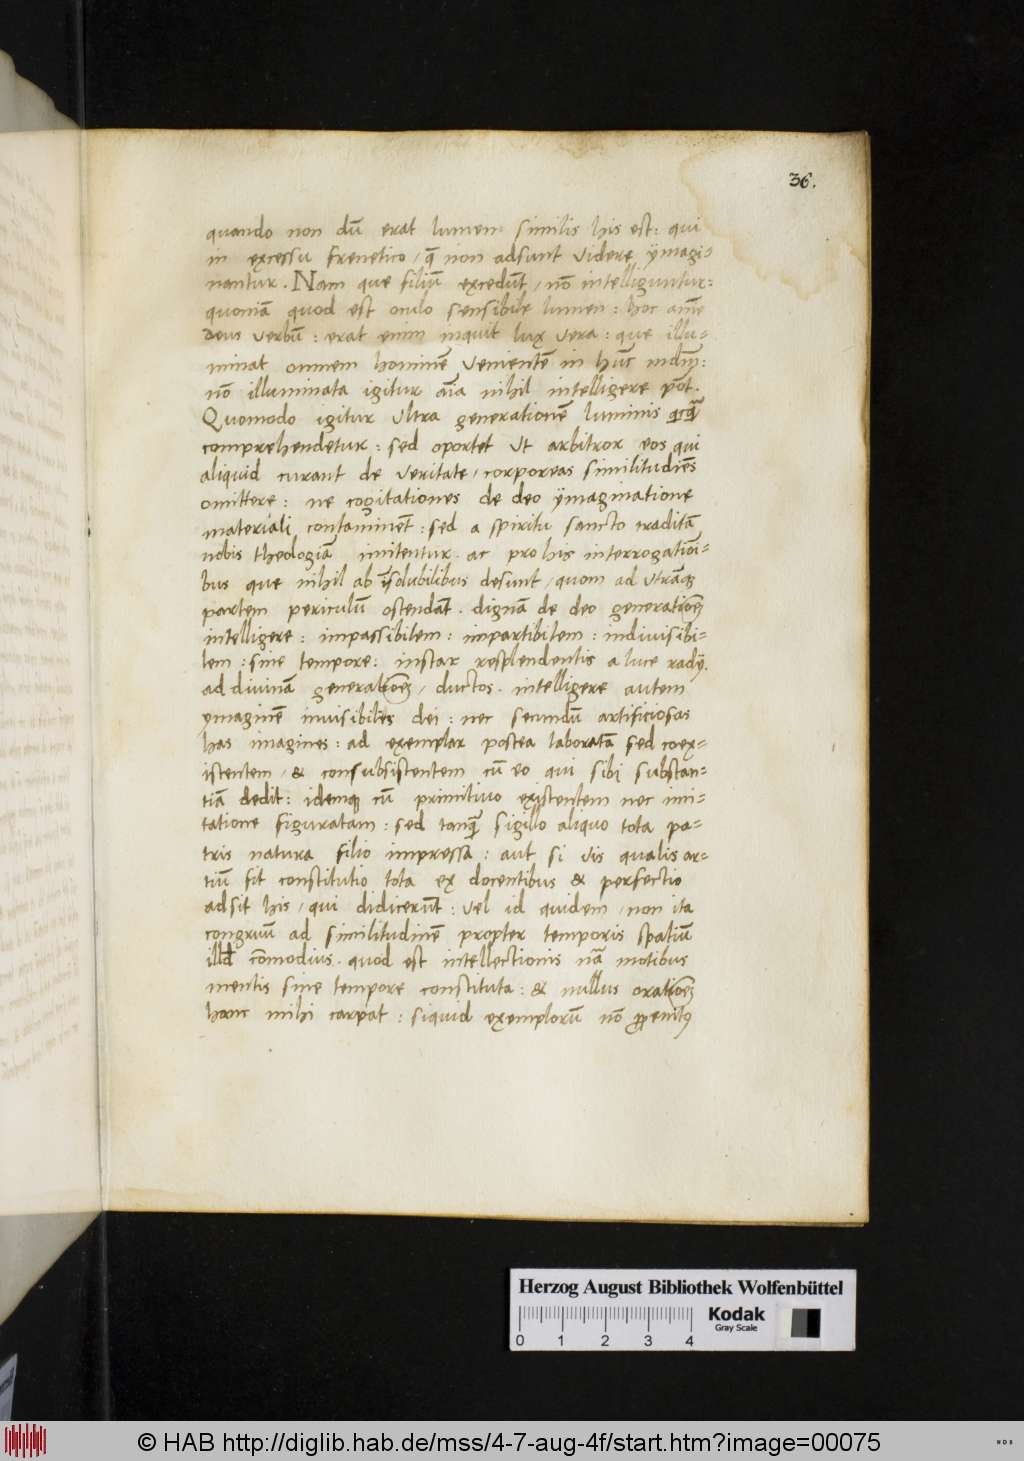 36.
quando non dū erat lumen similis his est: qui
in excessu frenetico / q̄ non adsunt videre ÿmagi-
nantur. Nam que filiū excedūt / nō intelliguntur:
quoniā quod est oculo sensibile lumen: hoc aīe
deus verbū: erat enim inquit lux vera: que illu-
minat omnem hominē venientē in hūc mdm̄:
nō illuminata igitur aīa nihil intelligere pōt.
Quomodo igitur ultra generationē luminis
comprehendetur: sed oportet ut arbitror eos qui
aliquid curant de veritate / corporeas similitudiēs
omittere: ne cogitationes de deo ÿmaginatione
materiali contaminēt: sed a spiritu sancto traditā
nobis theologiā imitentur. ac pro his interrogatiōi-
bus que nihil ab īsolubilibus desunt / quom ad utrāqꝫ
partem periculū ostendāt. dignā de deo generatiōeꝫ
intelligere: impassibilem: impartibilem: indivisibi-
lem: sine tempore: instar resplendentis a luce radÿ.
ad divinā generatiōeꝫ / ductos. intelligere autem
ymaginē invisibiles dei: nec secundū artificiosas
has imagines: ad exemplar postea laboratā sed coex-
istentem / & consubsistentem cū eo qui sibi substan-
tiā dedit: idemqꝫ cū primitivo existentem nec imi-
tatione figuratam: sed tanqꝫ̄ sigillo aliquo tota pa-
tris natura filio impressa: aut si vis qualis ar-
tiū fit constitutio tota ex docentibus & perfectio
adsit his / qui didicerūt: vel id quidem / non ita
congruū ad similitudinē propter temporis spatiū
illd̄ cōmodius. quod est intellectionis nr̄a motibus
mentis sine tempore constituta: & nullus oratiōeꝫ
hanc mihi carpat: siquid exemplorū nō ꝓvenitꝰ
Herzog August Bibliothek Wolfenbüttel
0 1 2 3 4
Kodak
Gray Scale
© HAB http://diglib.hab.de/mss/4-7-aug-4f/start.htm?image=00075